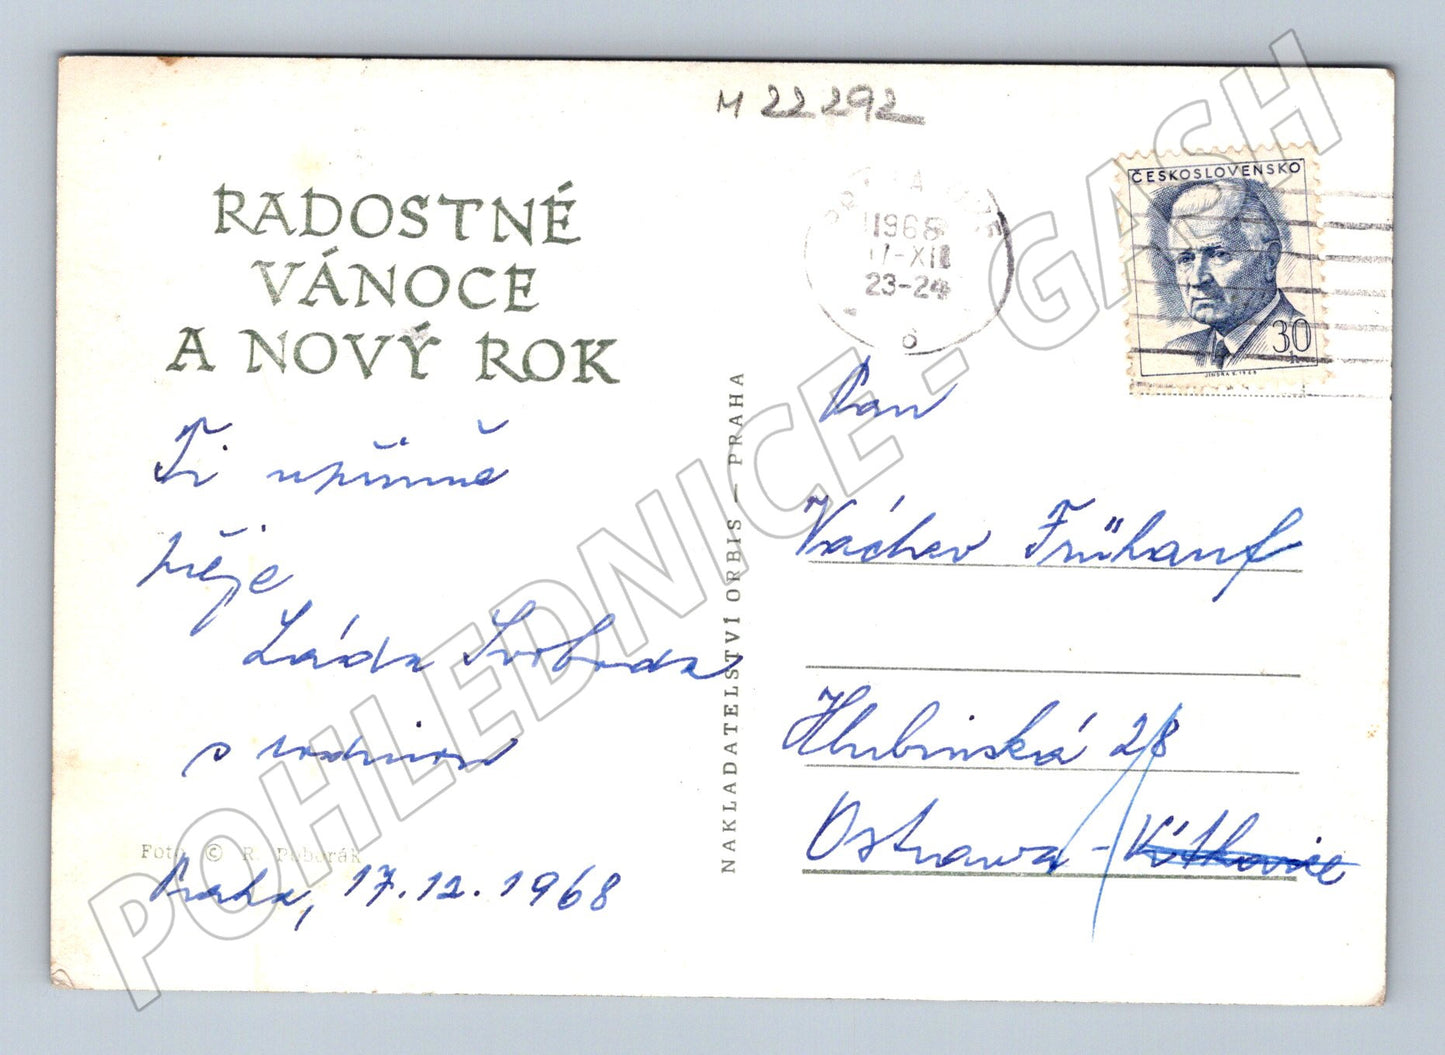 M 22292
RADOSTNÉ
VÁNOCE
A NOVÝ ROK
Ti upřímně
přeje
Láda Svoboda
s rodinou
Foto © R. Poborák
Praha, 17.12.1968
NAKLADATELSTVÍ ORBIS — PRAHA
1968
17-XII
23-24
6
ČESKOSLOVENSKO
30
h
JINDRA S. 1968
Pan
Václav Frühauf
Hlubinská 28
Ostrava - Vítkovice
POHLEDNICE - GASH